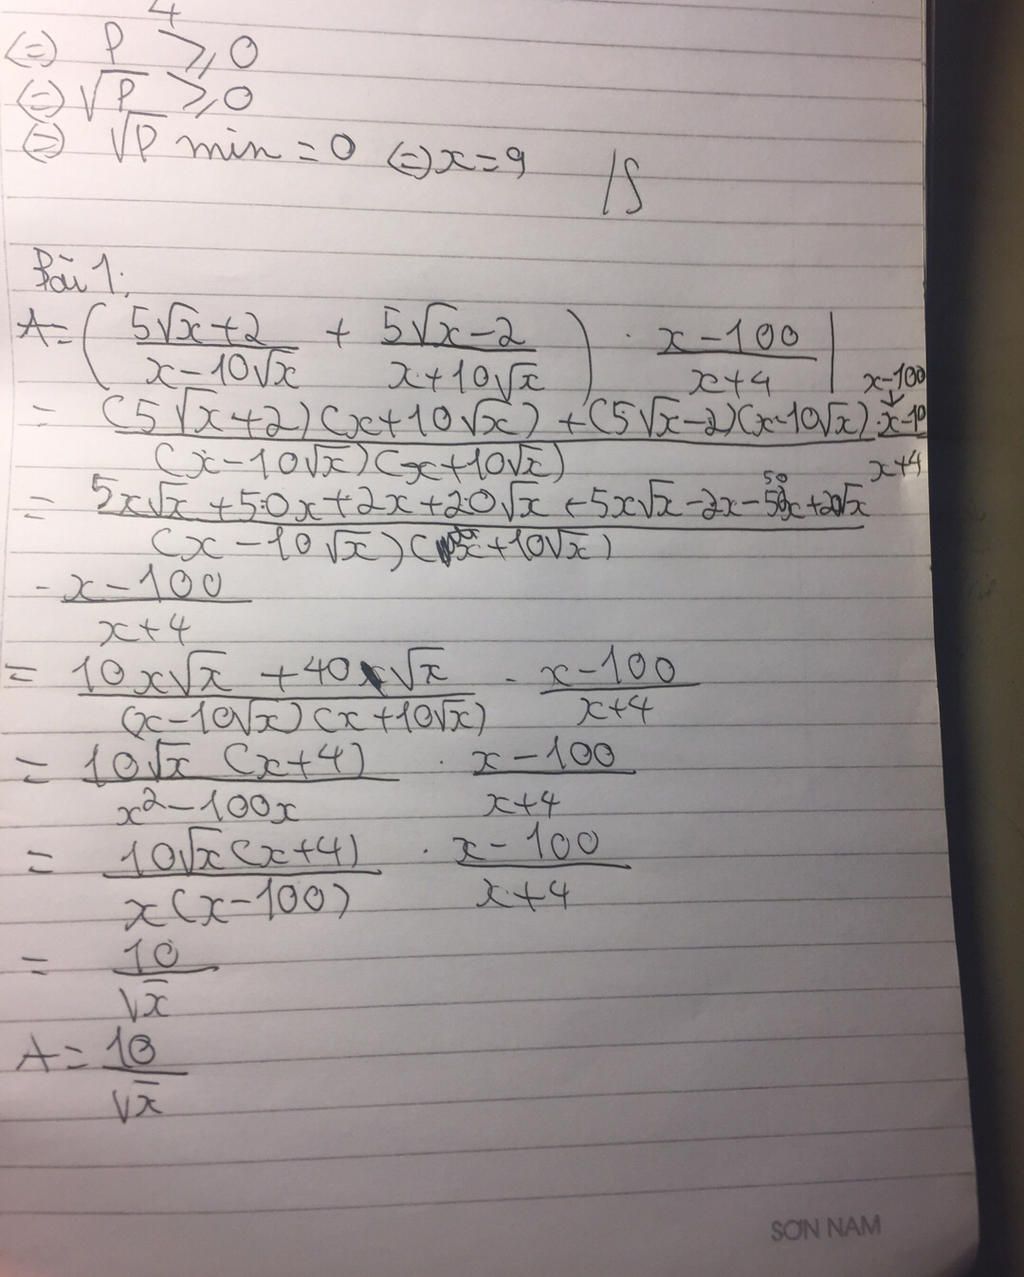 4
(=) P ⩾ 0
(=) √P ⩾ 0
(=) √P min = 0 (=) x = 9
Bài 1:
A = ( (5√x + 2)/(x - 10√x) + (5√x - 2)/(x + 10√x) ) . (x - 100)/(x + 4)
x - 100
= ((5√x + 2)(x + 10√x) + (5√x - 2)(x - 10√x))/((x - 10√x)(x + 10√x)) . (x - 10)/(x + 4)
50
= (5x√x + 50x + 2x + 20√x + 5x√x - 2x - 50x + 20√x)/((x - 10√x)(x + 10√x))
. (x - 100)/(x + 4)
= (10x√x + 40√x)/((x - 10√x)(x + 10√x)) . (x - 100)/(x + 4)
= (10√x (x + 4))/(x² - 100x) . (x - 100)/(x + 4)
= (10√x (x + 4))/(x(x - 100)) . (x - 100)/(x + 4)
= 10/√x
A = 10/√x
SƠN NAM